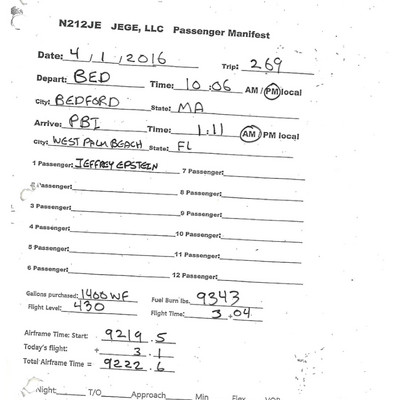 N212JE JEGE, LLC Passenger Manifest
Date: 4/1/2016 Trip: 269
Depart: BED Time: 10:06 AM / PM local
City: BEDFORD State: MA
Arrive: PBI Time: 1:11 AM / PM local
City: WEST PALM BEACH State: FL
1 Passenger: JEFFREY EPSTEIN 7 Passenger:
2 Passenger: 8 Passenger:
3 Passenger: 9 Passenger:
4 Passenger: 10 Passenger:
5 Passenger: 11 Passenger:
6 Passenger: 12 Passenger:
Gallons purchased: 1400 WF Fuel Burn lbs. 9343
Flight Level: 430 Flight Time: 3+04
Airframe Time: Start: 9219.5
Today's flight: + 3.1
Total Airframe Time = 9222.6
Night: T/O Approach Min Flex VOR